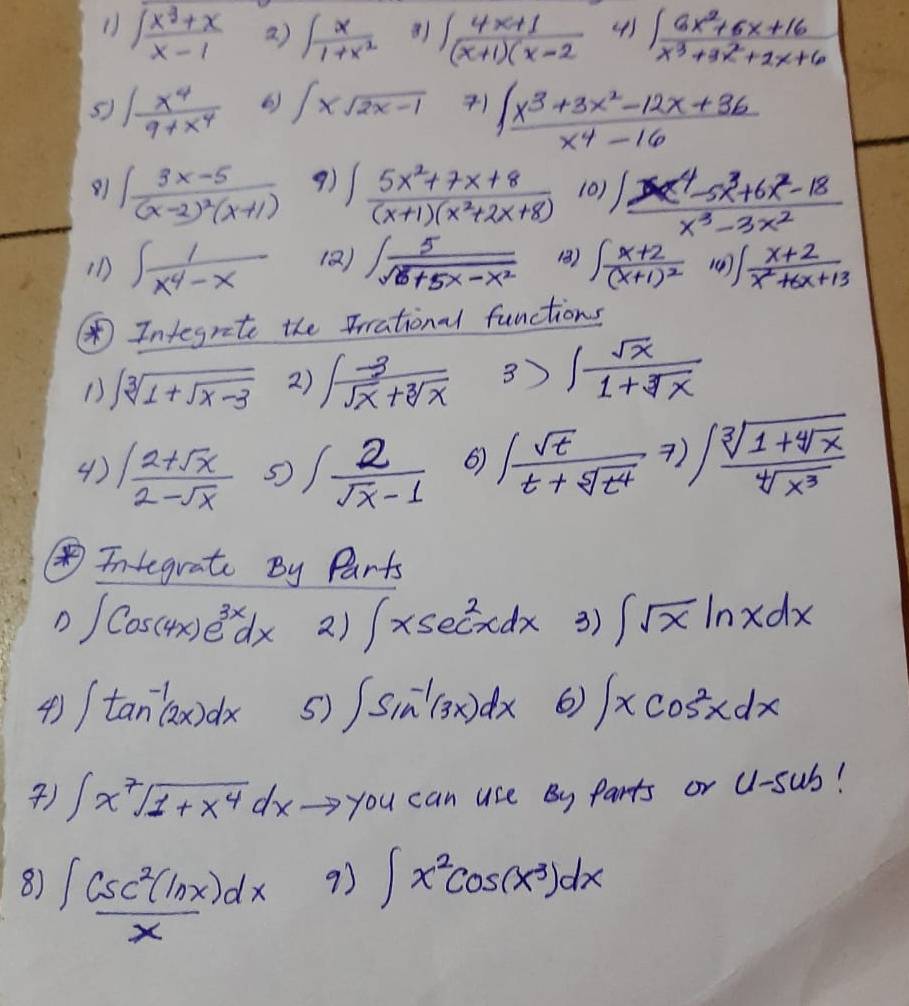 1) ∫ (x³+x)/(x-1) 2) ∫ x/(1+x²) 3) ∫ (4x+1)/((x+1)(x-2) 4) ∫ (6x²+6x+16)/(x³+3x²+2x+6
5) ∫ x⁴/(9+x⁴) 6) ∫ x√(2x-1) 7) ∫ (x³+3x²-12x+36)/(x⁴-16)
8) ∫ (3x-5)/((x-2)²(x+1)) 9) ∫ (5x²+7x+8)/((x+1)(x²+2x+8)) 10) ∫ (x⁴-5x³+6x²-18)/(x³-3x²)
11) ∫ 1/(x⁴-x) 12) ∫ 5/√(6+5x-x²) 13) ∫ (x+2)/(x+1)² 14) ∫ (x+2)/(x²+6x+13)
* Integrate the Irrational functions
1) ∫ ∛(1+√(x-3)) 2) ∫ -3/(√x+∛x) 3> ∫ √x/(1+∛x)
4) ∫ (2+√x)/(2-√x) 5) ∫ 2/(√x-1) 6) ∫ √t/(t+⁵√t⁴) 7) ∫ ∛(1+∜x)/∜x³
* Integrate By Parts
1) ∫ Cos(4x)e³ˣdx 2) ∫ xsec²xdx 3) ∫ √x lnxdx
4) ∫ tan⁻¹(2x)dx 5) ∫ Sin⁻¹(3x)dx 6) ∫ x cos²xdx
7) ∫ x⁷√(1+x⁴) dx → you can use By Parts or U-sub!
8) ∫ Csc²(lnx)dx/x 9) ∫ x²cos(x³)dx